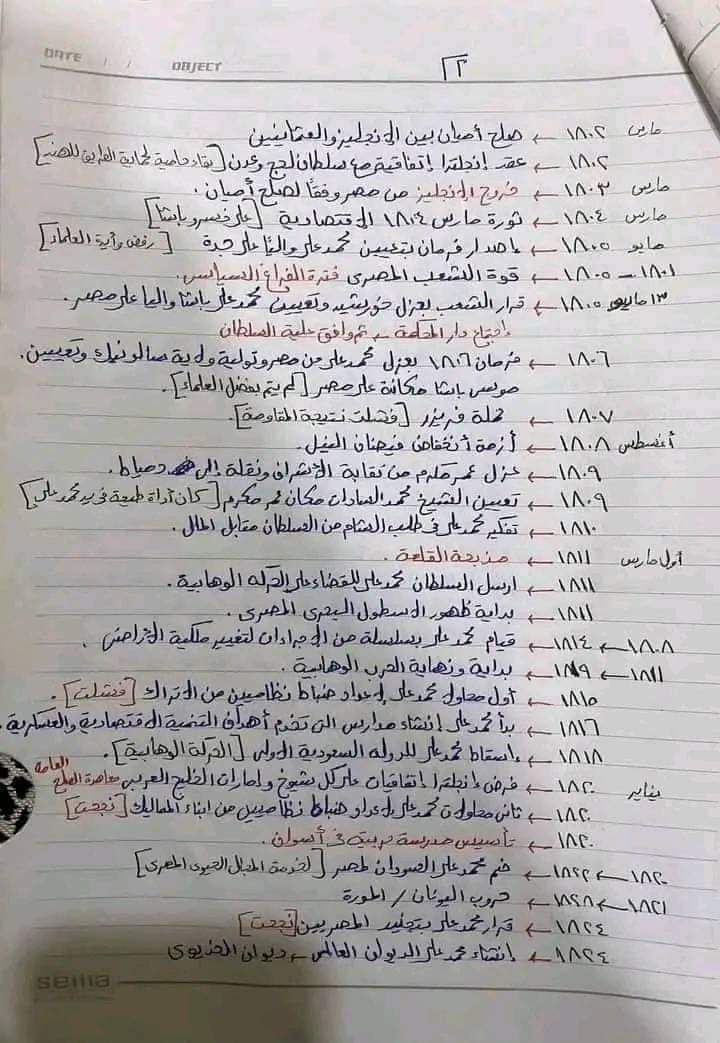 DATE / / OBJECT
٢
مارس ١٨٠٢ ← صلح أميان بين الإنجليز والعثمانيين
١٨٠٢ ← عقد إنجلترا إتفاقية مع سلطان لحج وعدن [بقاء حامية لحماية الطريق للهند]
مارس ١٨٠٣ ← خروج الإنجليز من مصر وفقًا لصلح أميان.
مارس ١٨٠٤ ← ثورة مارس ١٨٠٤ الإقتصادية [على خسرو باشا]
مايو ١٨٠٥ ← إصدار فرمان بتعيين محمد على واليًا على جدة [رفض وأيده العلماء]
١٨٠١ - ١٨٠٥ ← قوة الشعب المصرى فترة الفراغ السياسى.
١٣ مايو ١٨٠٥ ← قرار الشعب بعزل خورشيد وتعيين محمد على باشا واليا على مصر.
إجتماع دار المحكمة ← ثم وافق علية السلطان
١٨٠٦ ← فرمان ١٨٠٦ بعزل محمد على من مصر وتولية ولاية سالونيك وتعيين.
موسى باشا مكانة على مصر [لم يتم بفضل العلماء].
١٨٠٧ ← حملة فريزر [فشلت نتيجة المقاومة].
أغسطس ١٨٠٨ ← أزمة أنخفاض فيضان النيل.
١٨٠٩ ← عزل عمر مكرم من نقابة الأشراف ونقلة إلى دمياط.
١٨٠٩ ← تعيين الشيخ محمد السادات مكان عمر مكرم [كان أداة طيعة فى يد محمد على]
١٨١٠ ← تفكير محمد على فى طلب الشام من السلطان مقابل المال.
أول مارس ١٨١١ ← مذبحة القلعة.
١٨١١ ← ارسل السلطان محمد على للقضاء على الحركه الوهابية.
١٨١١ ← بداية ظهور الاسطول البحرى المصرى.
١٨٠٨ ← ١٨١٤ ← قيام محمد على بسلسلة من الإجراءات لتغيير ملكية الأراضى.
١٨١١ ← ١٨١٩ ← بداية ونهاية الحرب الوهابية.
١٨١٥ ← أول محاولة محمد على لإعداد ضباط نظاميين من الاتراك [فشلت].
١٨١٦ ← بدأ محمد على إنشاء مدارس التى تخدم أهداف التنمية الإقتصادية والعسكرية.
١٨١٨ ← إسقاط محمد على للدولة السعودية الأولى [الحركة الوهابية].
يناير ١٨٢٠ ← فرض إنجلترا إتفاقيات على كل شيوخ وإمارات الخليج العربى معاهدة الصلح العامة
١٨٢٠ ← ثانى محاولات محمد على لإعداد ضباط نظاميين من ابناء المماليك [نجحت]
١٨٢٠ ← تأسيس مدرسة حربية فى أسوان.
١٨٢٠ ← ١٨٢٢ ← ضم محمد على السودان لمصر [لخدمة المجال الحيوى المصرى]
١٨٢١ ← ١٨٢٨ ← حروب اليونان / المورة
١٨٢٤ ← قرار محمد على بتجنيد المصريين [نجحت]
١٨٢٤ ← إنشاء محمد على الديوان العالى ← ديوان الخديوى